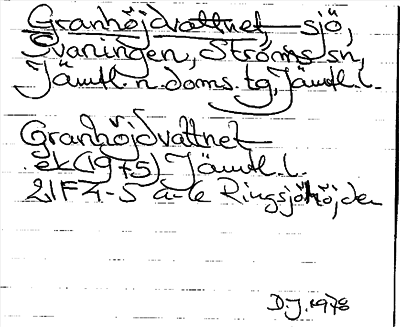 Granhöjdvattnet, sjö,
Svaningen, Ströms sn,
Jämtl. n. doms. tg, Jämtl. l.
Granhöjdvattnet
ek (1975) Jämtl. l.
21F 4-5 a-b Ringsjöhöjden
D.J. 1978